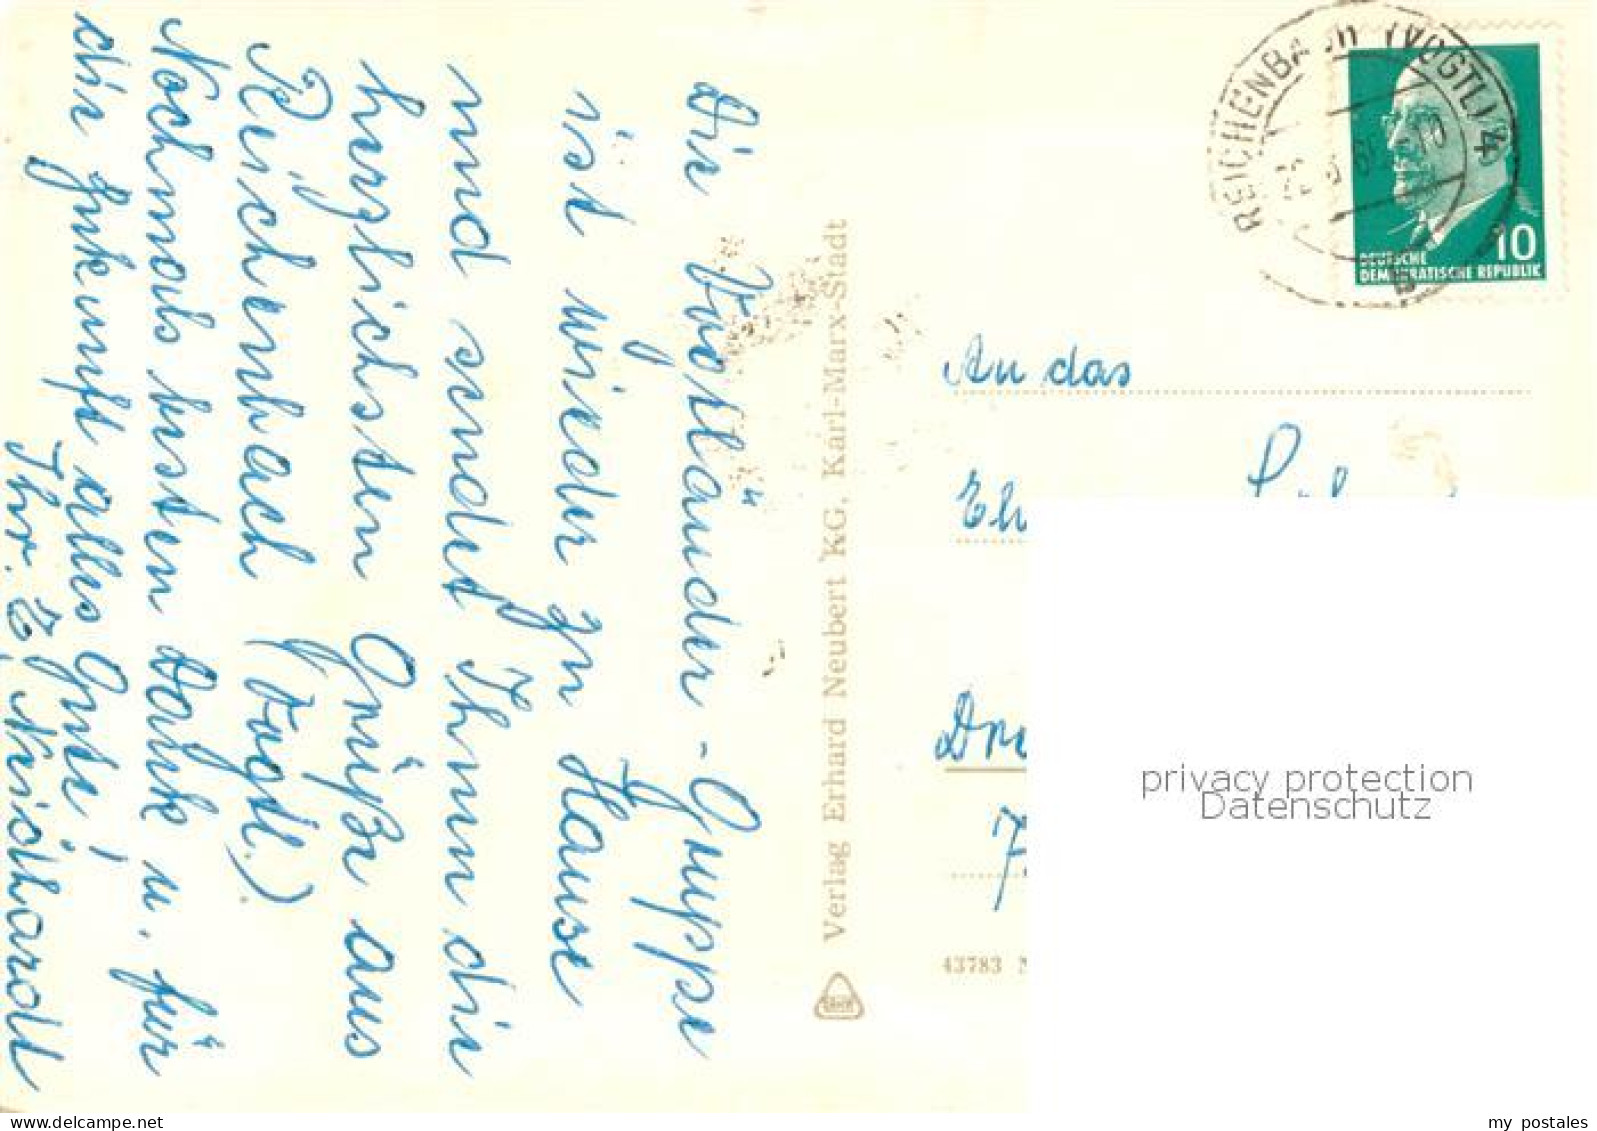 Die Vogtländer-Gruppe
ist wieder zu Hause
und sendet Ihnen die
herzlichsten Grüße aus
Reichenbach (Vogtl.)
Nochmals besten Dank u. für
die Zukunft alles Gute,
Ihr. E. Neidhardt
Verlag Erhard Neubert KG, Karl-Marx-Stadt
REICHENBACH (VOGTL) 4
10
DEUTSCHE
DEMOKRATISCHE REPUBLIK
An das
43783
privacy protection
Datenschutz
www.delcampe.net
my postales